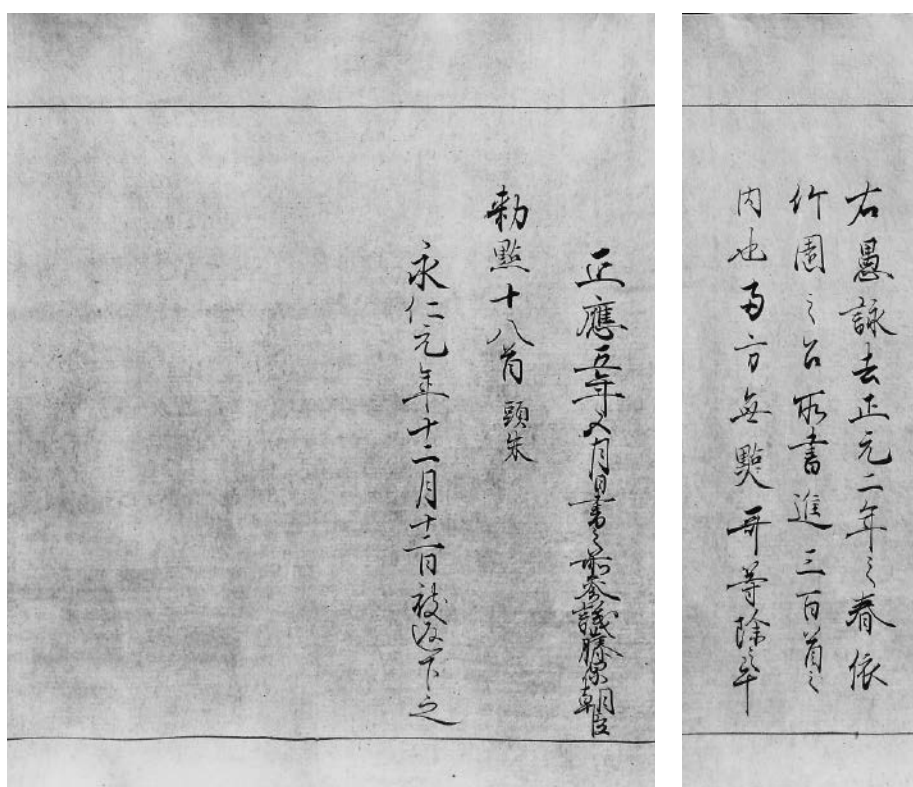 右愚詠去正元二年之春依
竹園之召所書進三百首之
内也両方無點哥等除之畢
正應五年月日書之前参議藤原朝臣
勅點十八首 頭朱
永仁元年十二月十二日被返下之